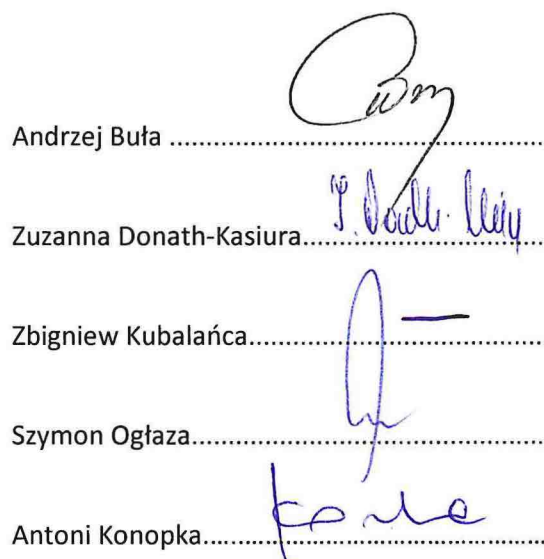 Andrzej Buła ..........................................................
Zuzanna Donath-Kasiura..........................................
Zbigniew Kubalańca...................................................
Szymon Ogłaza...........................................................
Antoni Konopka..........................................................